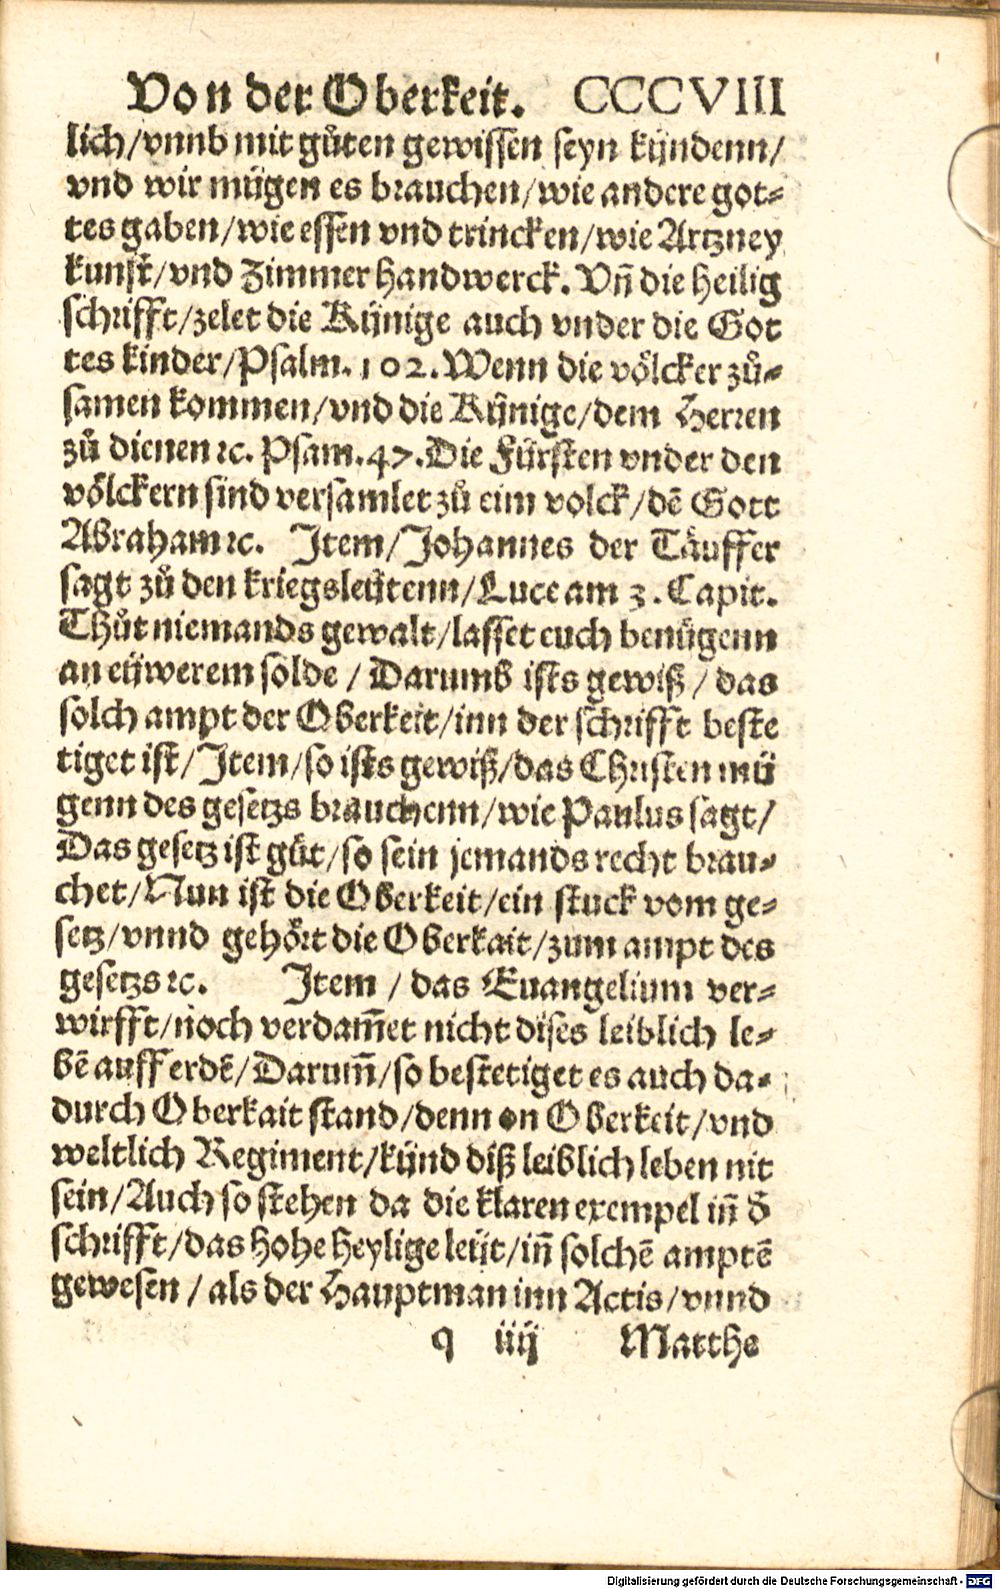 Von der Oberkeit. CCCVIII
lich/vnnb mit gůten gewissen seyn kündenn/
vnd wir mügen es brauchen/wie andere got⸗
tes gaben/wie essen vnd trincken/wie Artzney
kunst/vnd Zimmer handwerck. Vñ die heilig
schrifft/zelet die Künige auch vnder die Got
tes kinder/Psalm. 102. Wenn die völcker zů⸗
samen kommen/vnd die Künige/dem Herren
zů dienen ꝛc. Psam. 47. Die Fürsten vnder den
völckern sind versamlet zů eim volck/dē Gott
Abraham ꝛc. Item/Johannes der Täuffer
sagt zů den kriegsleütenn/Luce am 3. Capit.
Thůt niemands gewalt/lasset euch benügenn
an eüwerem solde / Darumb ists gewiß / das
solch ampt der Oberkeit/inn der schrifft beste
tiget ist/Item/so ists gewiß/das Christen mü
genn des gesetzs brauchenn/wie Paulus sagt/
Das gesetz ist gůt/so sein jemands recht brau⸗
chet/Nun ist die Oberkeit/ein stuck vom ge⸗
setz/vnnd gehört die Oberkait/zum ampt des
gesetzs ꝛc. Item / das Euangelium ver⸗
wirfft/noch verdam̄et nicht dises leiblich le⸗
bē auff erdē/Darum̄/so bestetiget es auch da⸗
durch Oberkait stand/denn on Oberkeit/vnd
weltlich Regiment/künd diß leiblich leben nit
sein/Auch so stehen da die klaren exempel in̄ d̄
schrifft/das hohe heylige leüt/in̄ solchē amptē
gewesen / als der Hauptman inn Actis/vnnd
q iiij Matthe
Digitalisierung gefördert durch die Deutsche Forschungsgemeinschaft - DFG